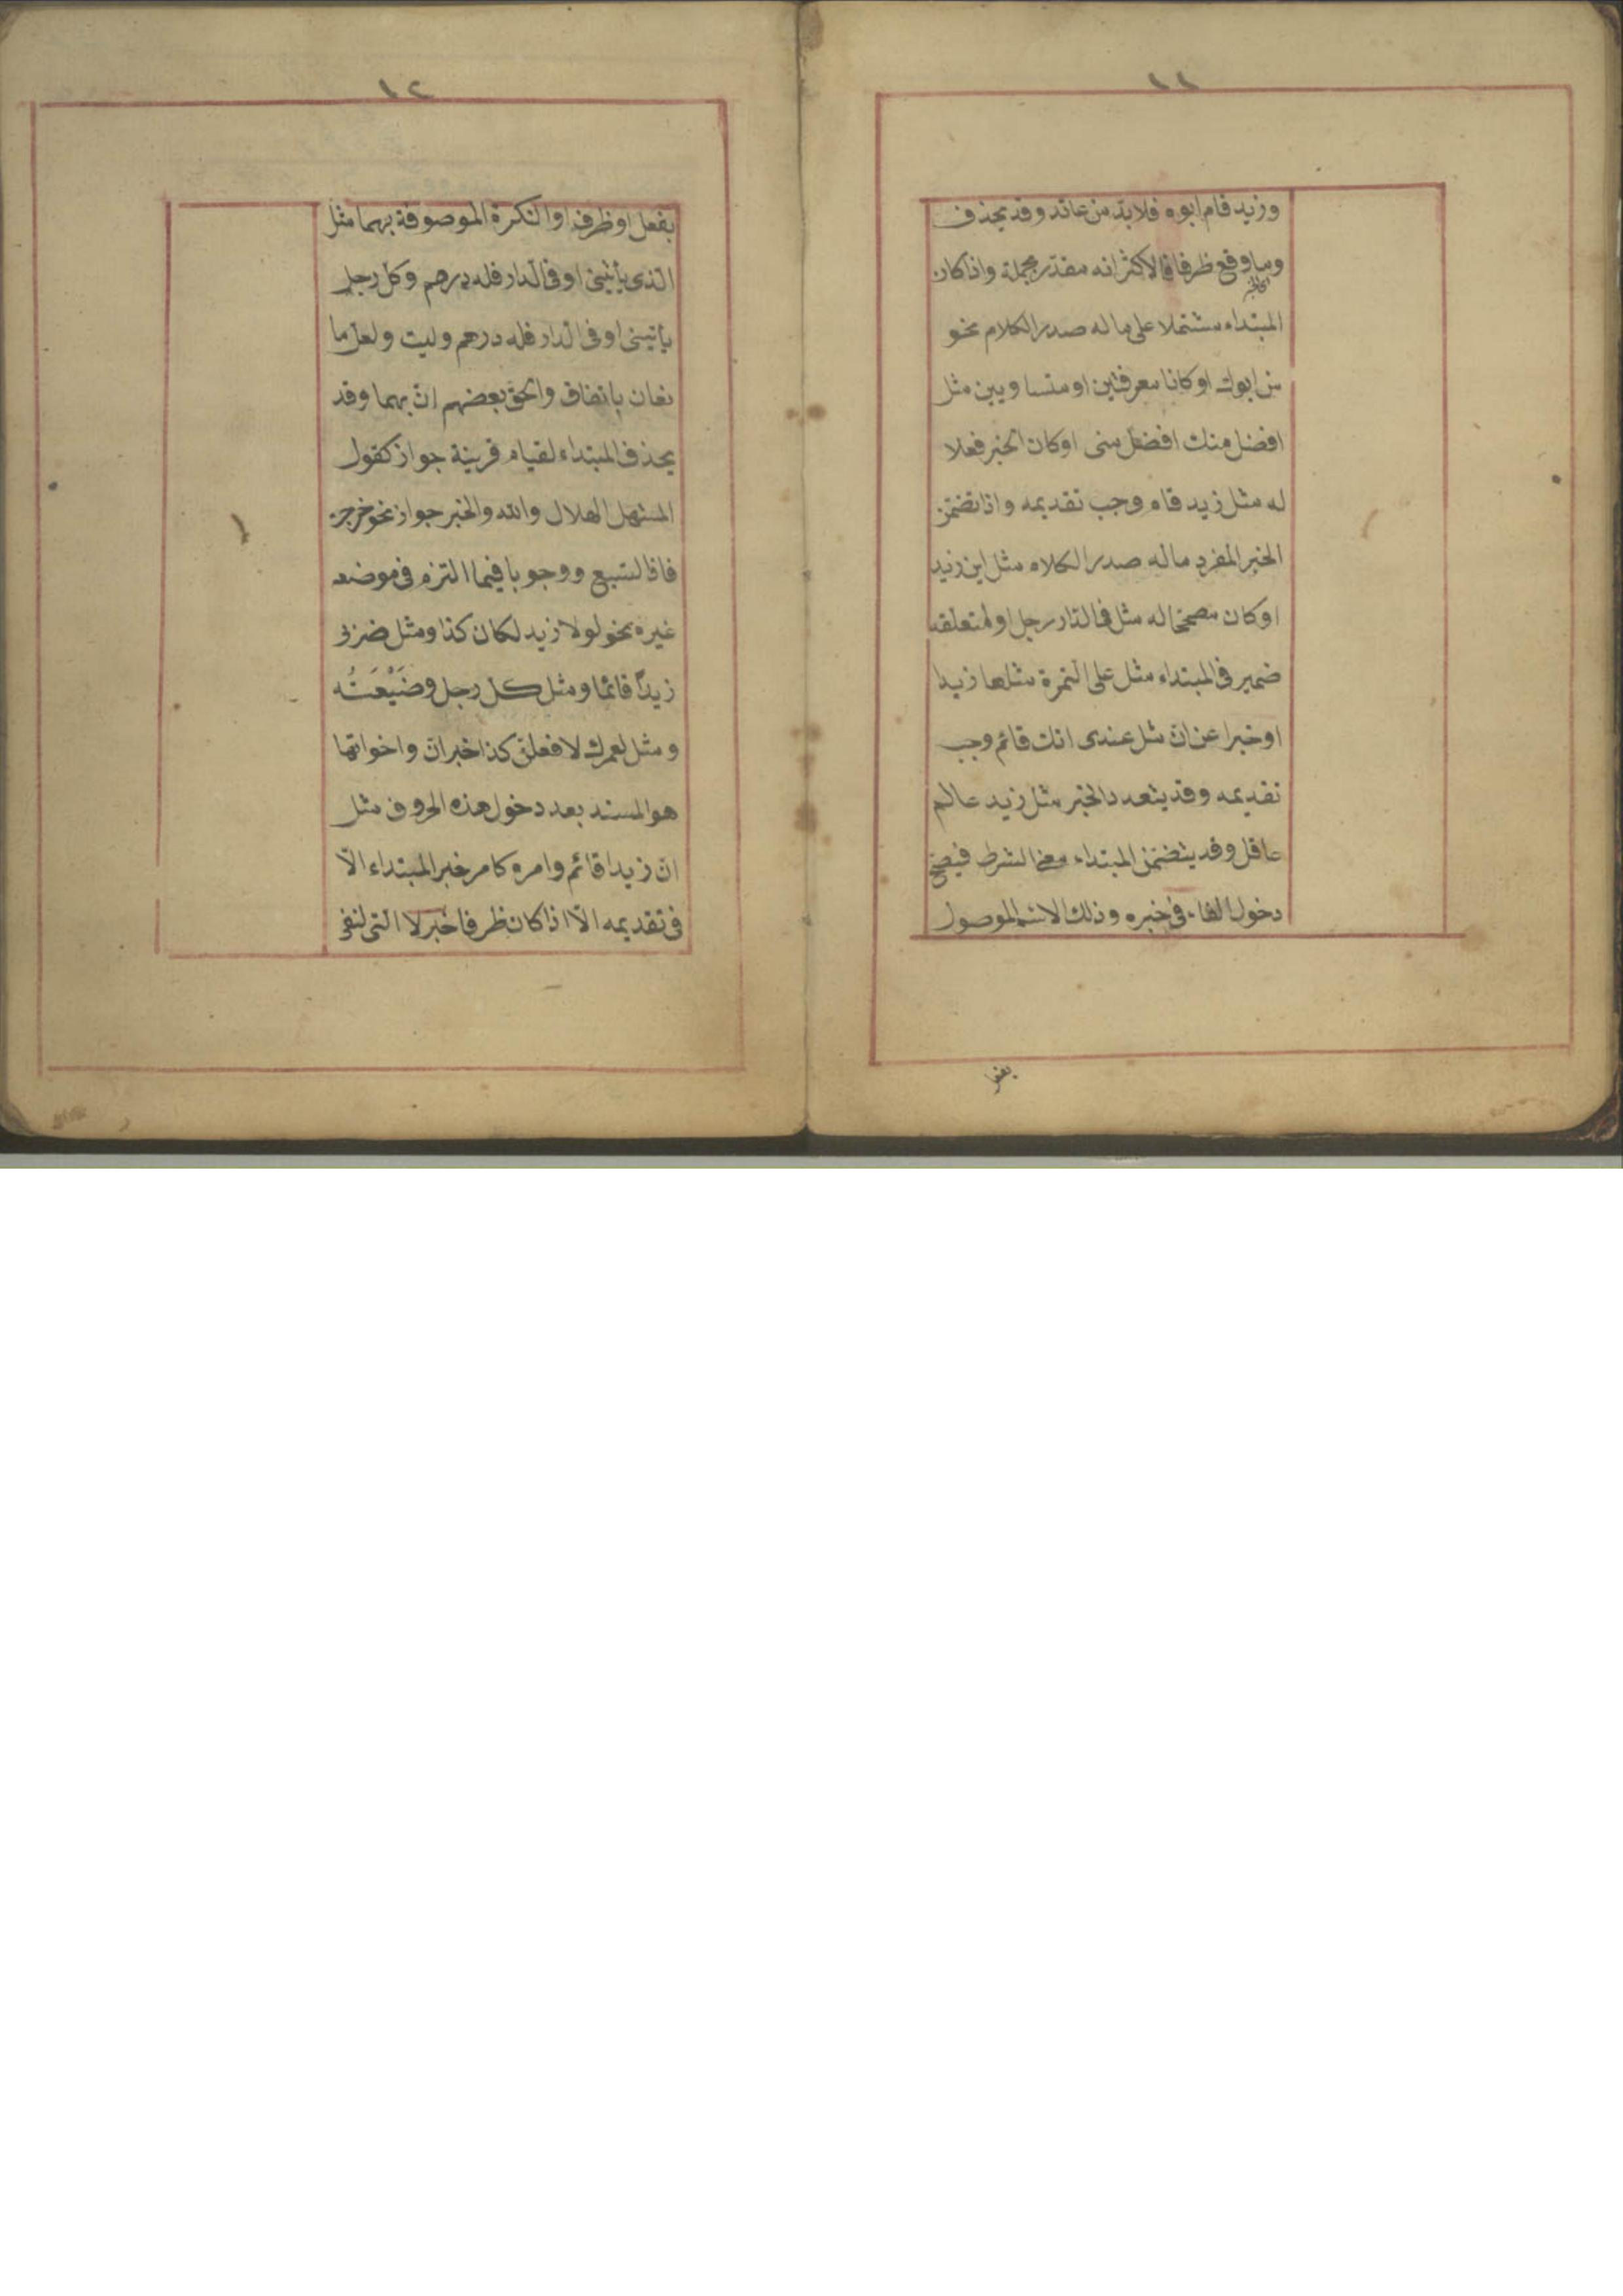 ١١
وزيد قام ابوه فلابدّ من عائد وقد يحذف
وما وقع ظرفا فالاكثر انه مقدّر بجملة واذا كان
المبتداء مشتملا على ما له صدر الكلام نحو
من ابوك او كانا معرفتين او متساويين مثل
افضل منك افضل منى او كان الخبر فعلا
له مثل زيد قام وجب تقديمه واذا تضمّن
الخبر المفرد ما له صدر الكلام مثل اين زيد
او كان مصحّحا له مثل فى الدّار رجل او لمتعلقه
ضمير فى المبتداء مثل على التمرة مثلها زبدا
او خبرا عن انّ مثل عندى انك قائم وجب
تقديمه وقد يتعدد الخبر مثل زيد عالم
عاقل وقد يتضمّن المبتداء معنى الشرط فيصحّ
دخول الفاء فى خبره وذلك الاسم الموصول
بفعل
١٢
بفعل او ظرف او النكرة الموصوفة بهما مثل
الّذى يأتينى او فى الدار فله درهم وكلّ رجل
يأتينى او فى الدار فله درهم وليت ولعلّ ما
نعان باتفاق والحق بعضهم انّ بهما وقد
يحذف المبتداء لقيام قرينة جواز كقول
المستهل الهلال والله والخبر جواز نحو خرجت
فاذا السّبع ووجوبا فيما التزم فى موضعه
غيره نحو لولا زيد لكان كذا ومثل ضربى
زيدًا قائما ومثل كل رجل وضَيْعَتُه
ومثل لعمرك لافعلنّ كذا خبر انّ واخواتها
هو المسند بعد دخول هذه الحروف مثل
انّ زيدا قائم وامره كامر خبر المبتداء الّا
فى تقديمه الّا اذا كان ظرفا خبر لا التى لنفى